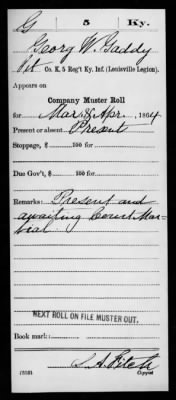 G 5 Ky.
Georg W. Gaddy
Pvt Co. K, 5 Reg't Ky. Inf. (Louisville Legion).
Appears on
Company Muster Roll
for Mar & Apr, 1864
Present or absent Present
Stoppage, $ 100 for
Due Gov't, $ 100 for
Remarks: Present and
awaiting Court Mar-
tial
NEXT ROLL ON FILE MUSTER OUT.
Book mark:
S. A. Fitch
Copyist